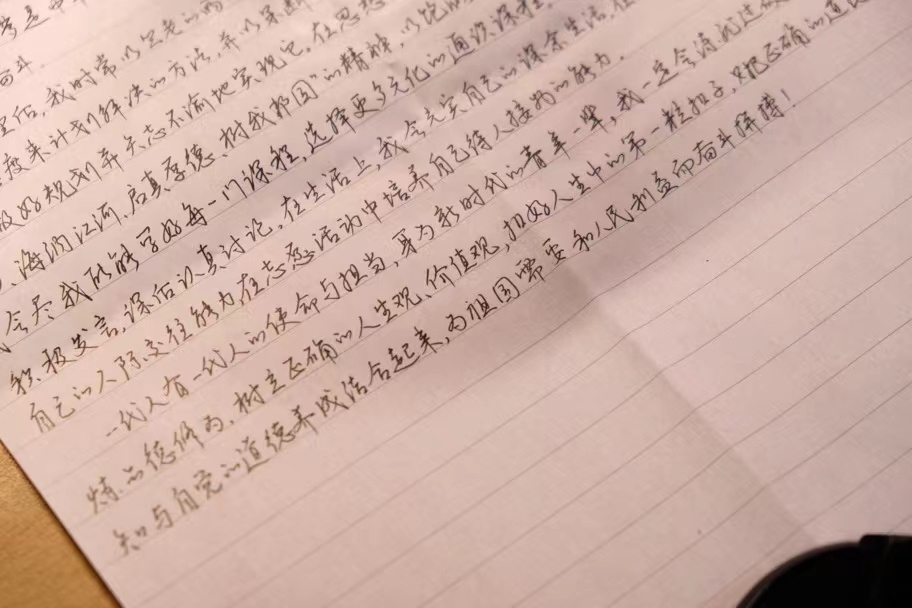 奋斗。
我时常以
度来计划解决的方法,并以果断
极好规划并矢志不渝地实现它。在思想
海纳江河、启真厚德、树我邦国"的精神,以饱
会尽我所能学好每一门课程,选择更多元化的通识课程,
积极发言,课后认真讨论。在生活上,我会充实自己的课余生活,在
自己的人际交往能力在志愿活动中培养自己待人接物的能力。
一代人有一代人的使命与担当,身为新时代的青年一辈,我一定会
炼品德修为,树立正确的人生观、价值观,扣好人生中的第一粒扣子,把正确的道德
知与自觉的道德养成结合起来,为祖国需要和人民利益而奋斗拼搏!